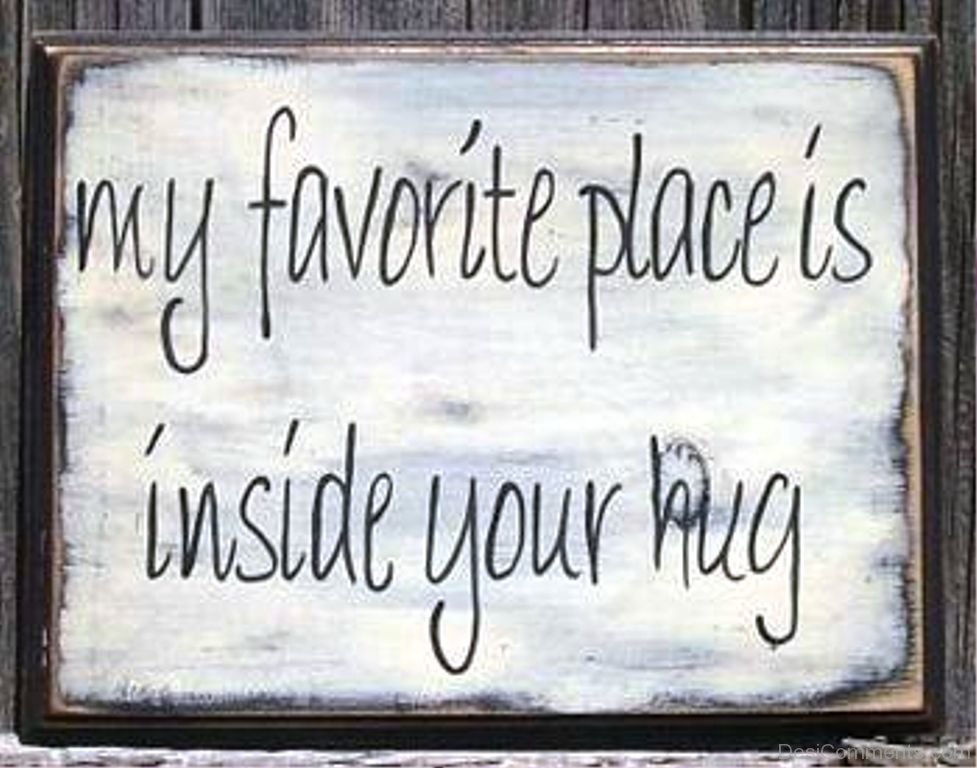 my favorite place is
inside your hug
DesiComments.com